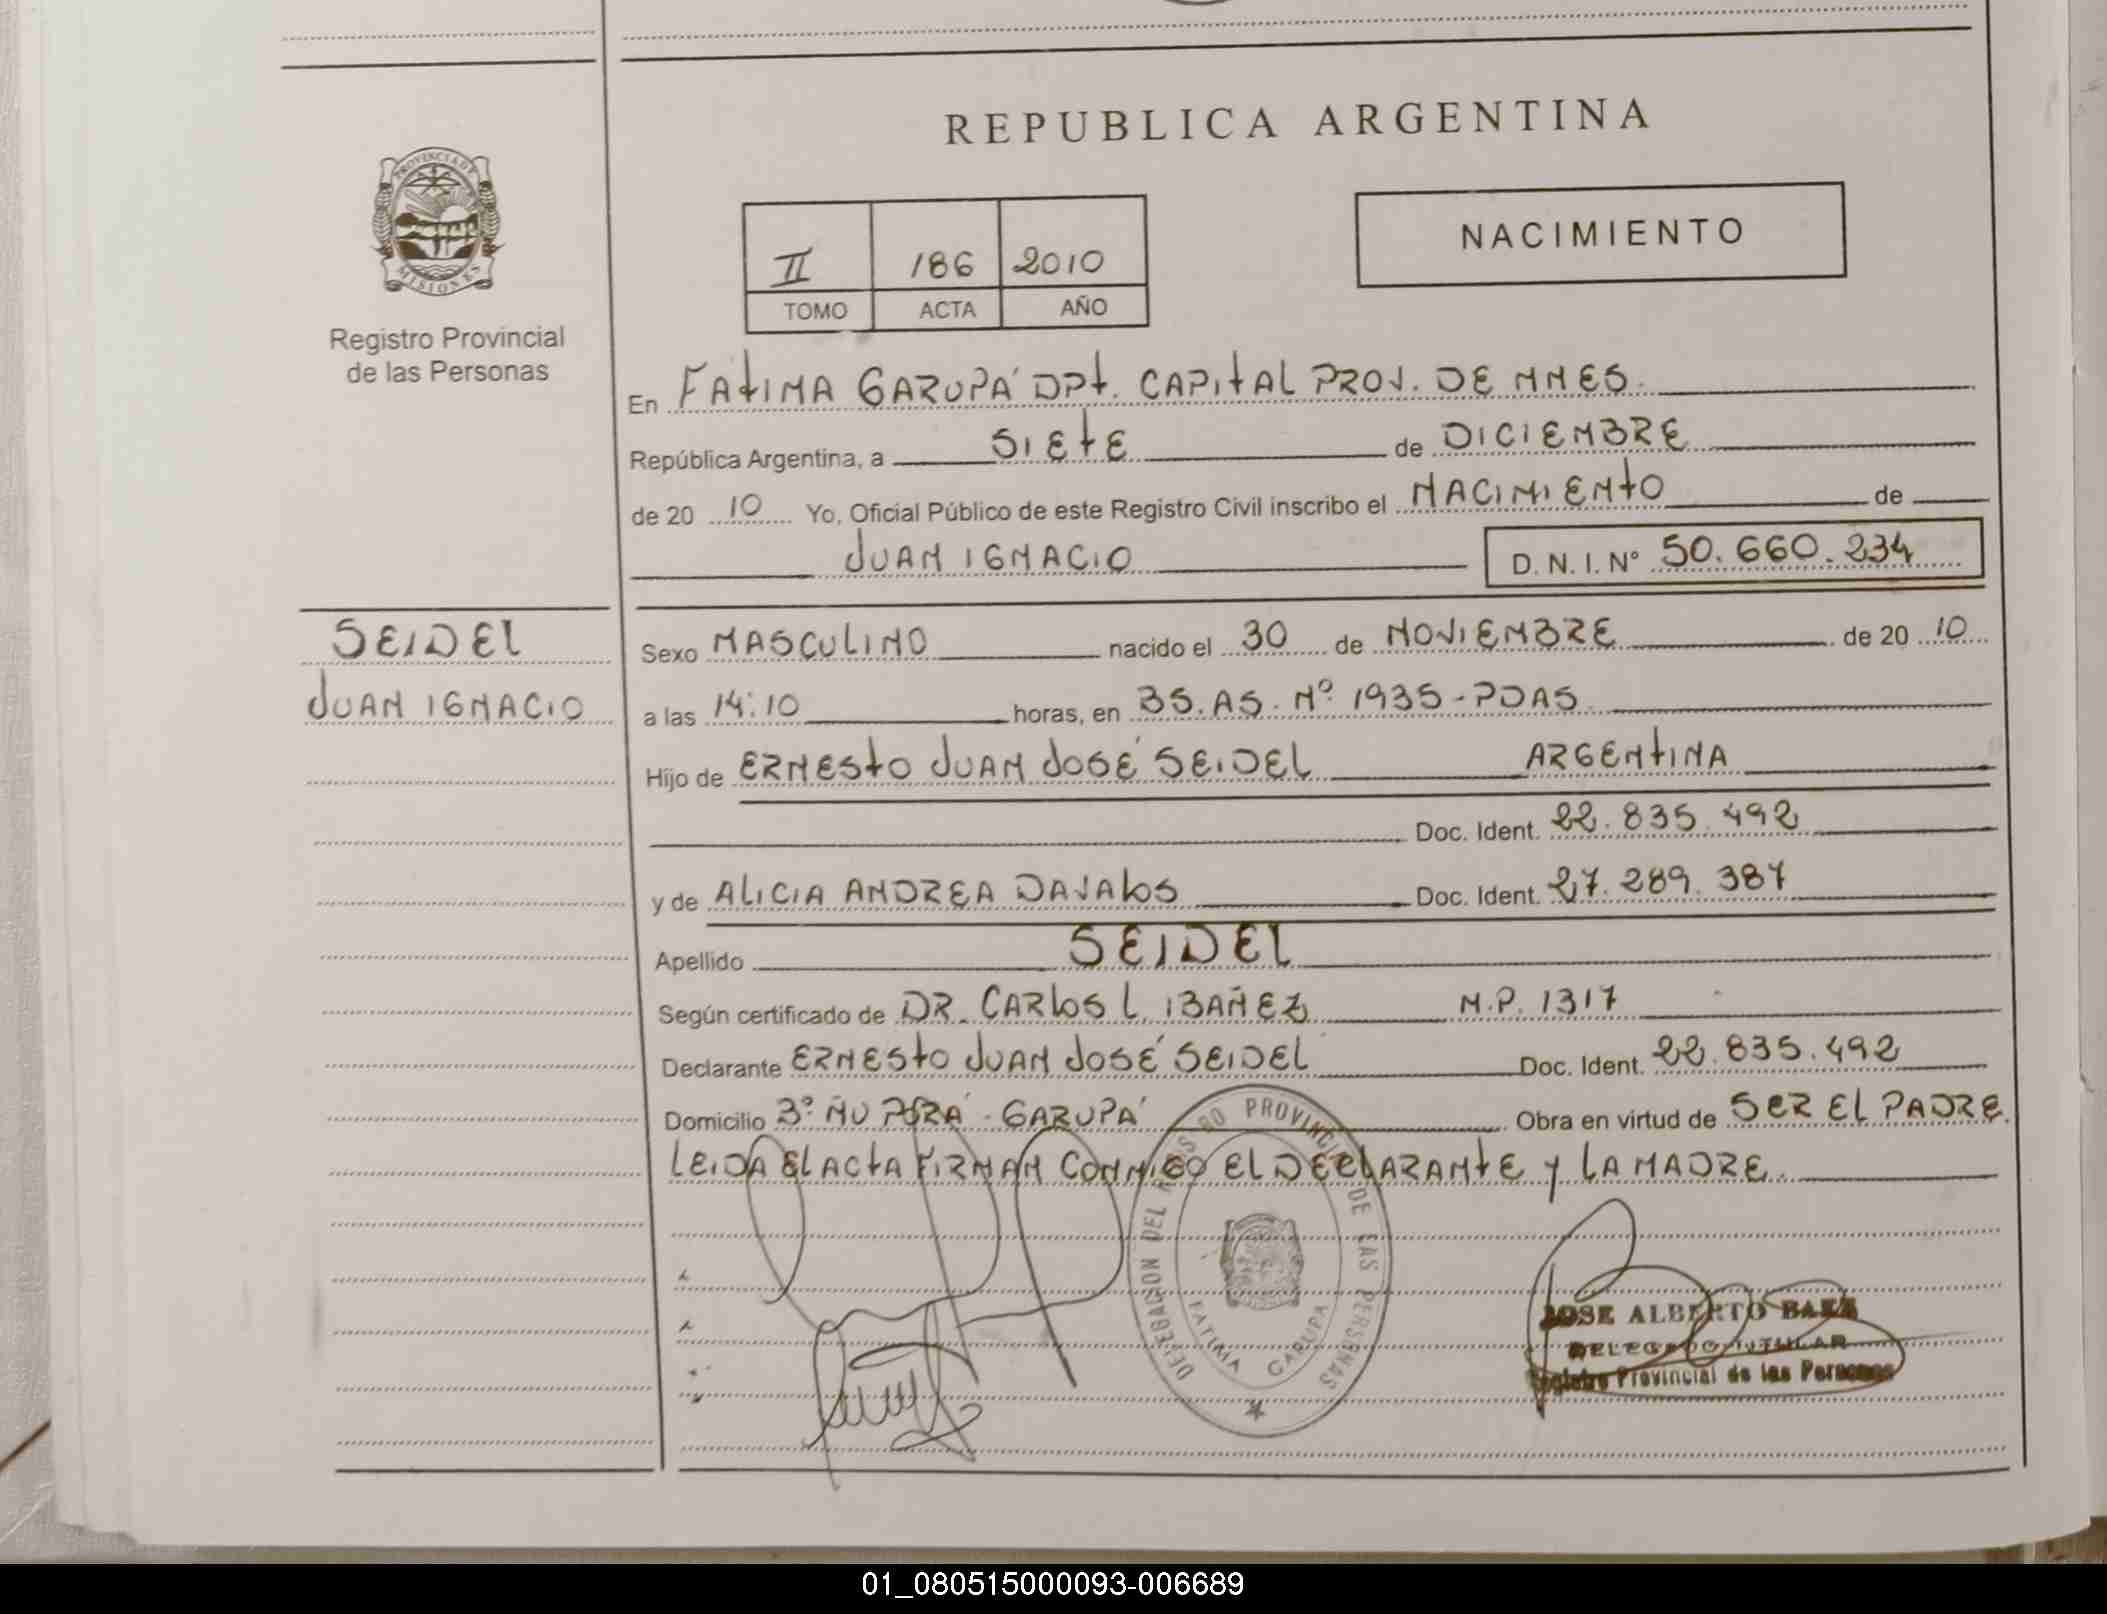 REPUBLICA ARGENTINA
PROVINCIA DE
MISIONES
Registro Provincial
de las Personas
II 186 2010
TOMO ACTA AÑO
NACIMIENTO
En FATIMA GARUPÁ DPT. CAPITAL PROV. DE MNES.
República Argentina, a SIETE de DICIEMBRE
de 20 10 Yo, Oficial Público de este Registro Civil inscribo el NACIMIENTO de
JUAN IGNACIO D. N. I. N° 50.660.234
SEIDEL
JUAN IGNACIO
Sexo MASCULINO nacido el 30 de NOVIEMBRE de 20 10
a las 14:10 horas, en BS. AS. Nº 1935 - PDAS
Hijo de ERNESTO JUAN JOSÉ SEIDEL ARGENTINA
Doc. Ident. 22.835.492
y de ALICIA ANDREA DAVALOS Doc. Ident. 27.289.387
Apellido SEIDEL
Según certificado de DR. CARLOS L. IBAÑEZ M.P. 1317
Declarante ERNESTO JUAN JOSÉ SEIDEL Doc. Ident. 22.835.492
Domicilio Bº ÑU PORÁ - GARUPÁ Obra en virtud de SER EL PADRE.
LEIDA EL ACTA FIRMAN CONMIGO EL DECLARANTE Y LA MADRE.
DELEGACION DEL REGISTRO PROVINCIAL DE LAS PERSONAS
FATIMA GARUPA
JOSE ALBERTO BAEZ
DELEGADO TITULAR
Registro Provincial de las Personas
01_080515000093-006689